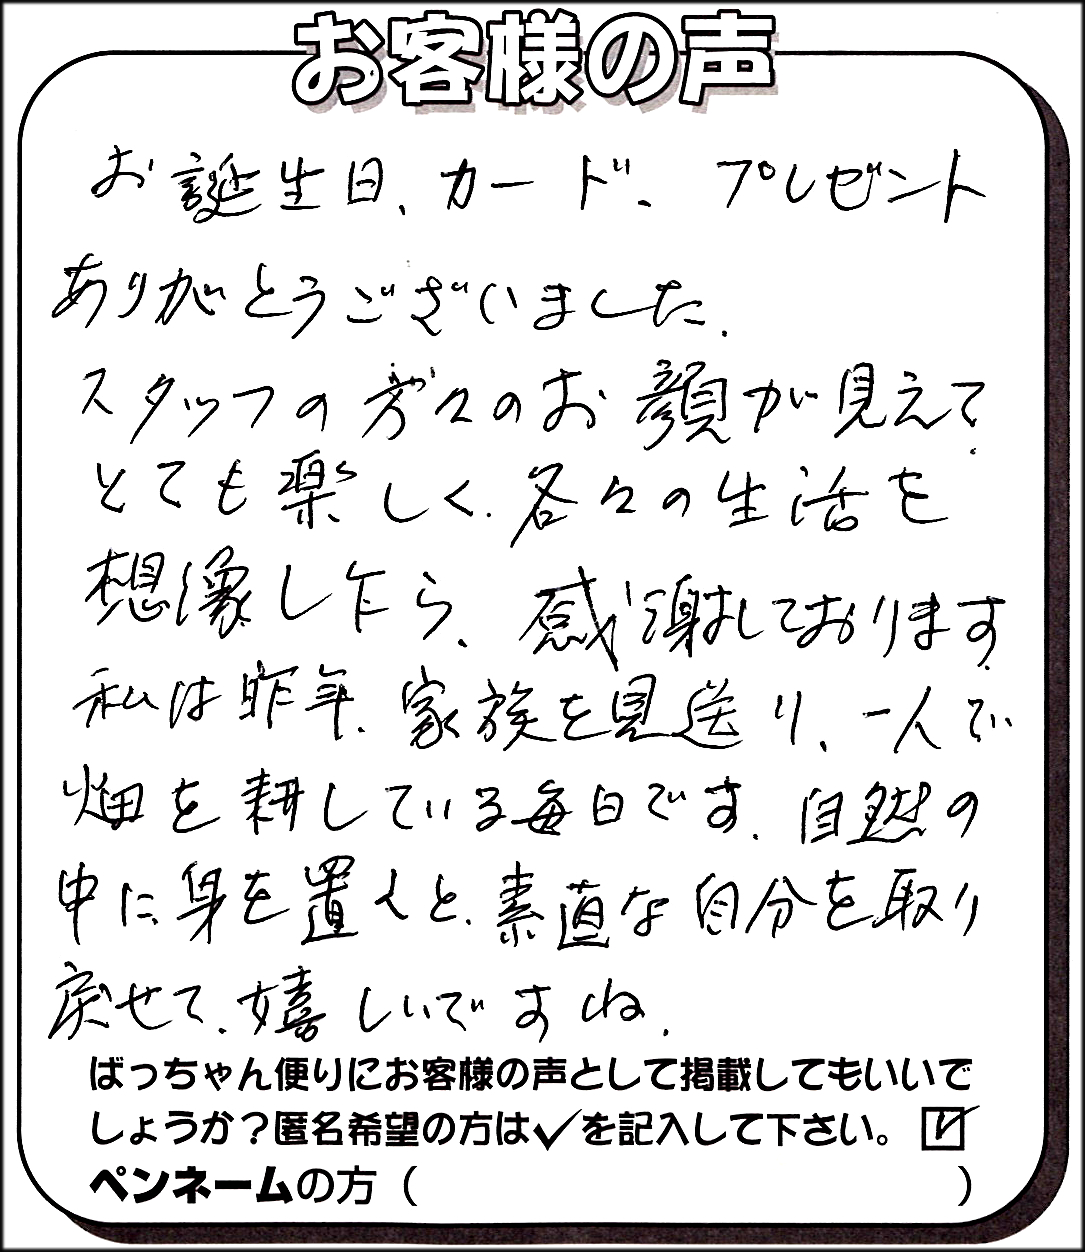 お客様の声
お誕生日、カード、プレゼント
ありがとうございました。
スタッフの方々のお顔が見えて
とても楽しく、各々の生活を
想像したら、感謝しております。
私は昨年、家族を見送り、一人で
畑を耕している毎日です。自然の
中に身を置くと、素直な自分を取り
戻せて、嬉しいですね。
ばっちゃん便りにお客様の声として掲載してもいいで
しょうか?匿名希望の方は✓を記入して下さい。☑
ペンネームの方（　　　　　　　）